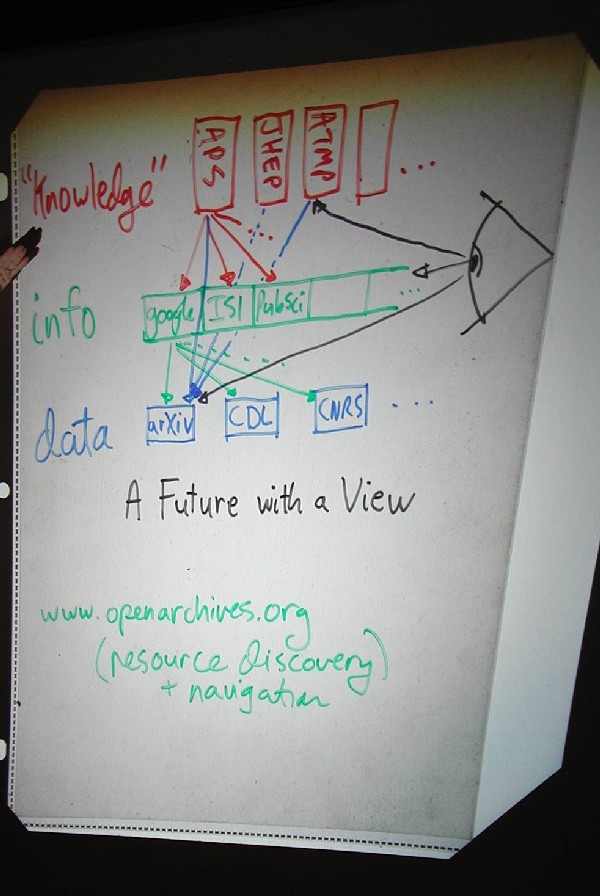 APS JHEP ATMP ...
"Knowledge"
info google ISI PubSci ...
data arXiv CDL CNRS ...
A Future with a View
www.openarchives.org
(resource discovery)
+ navigation